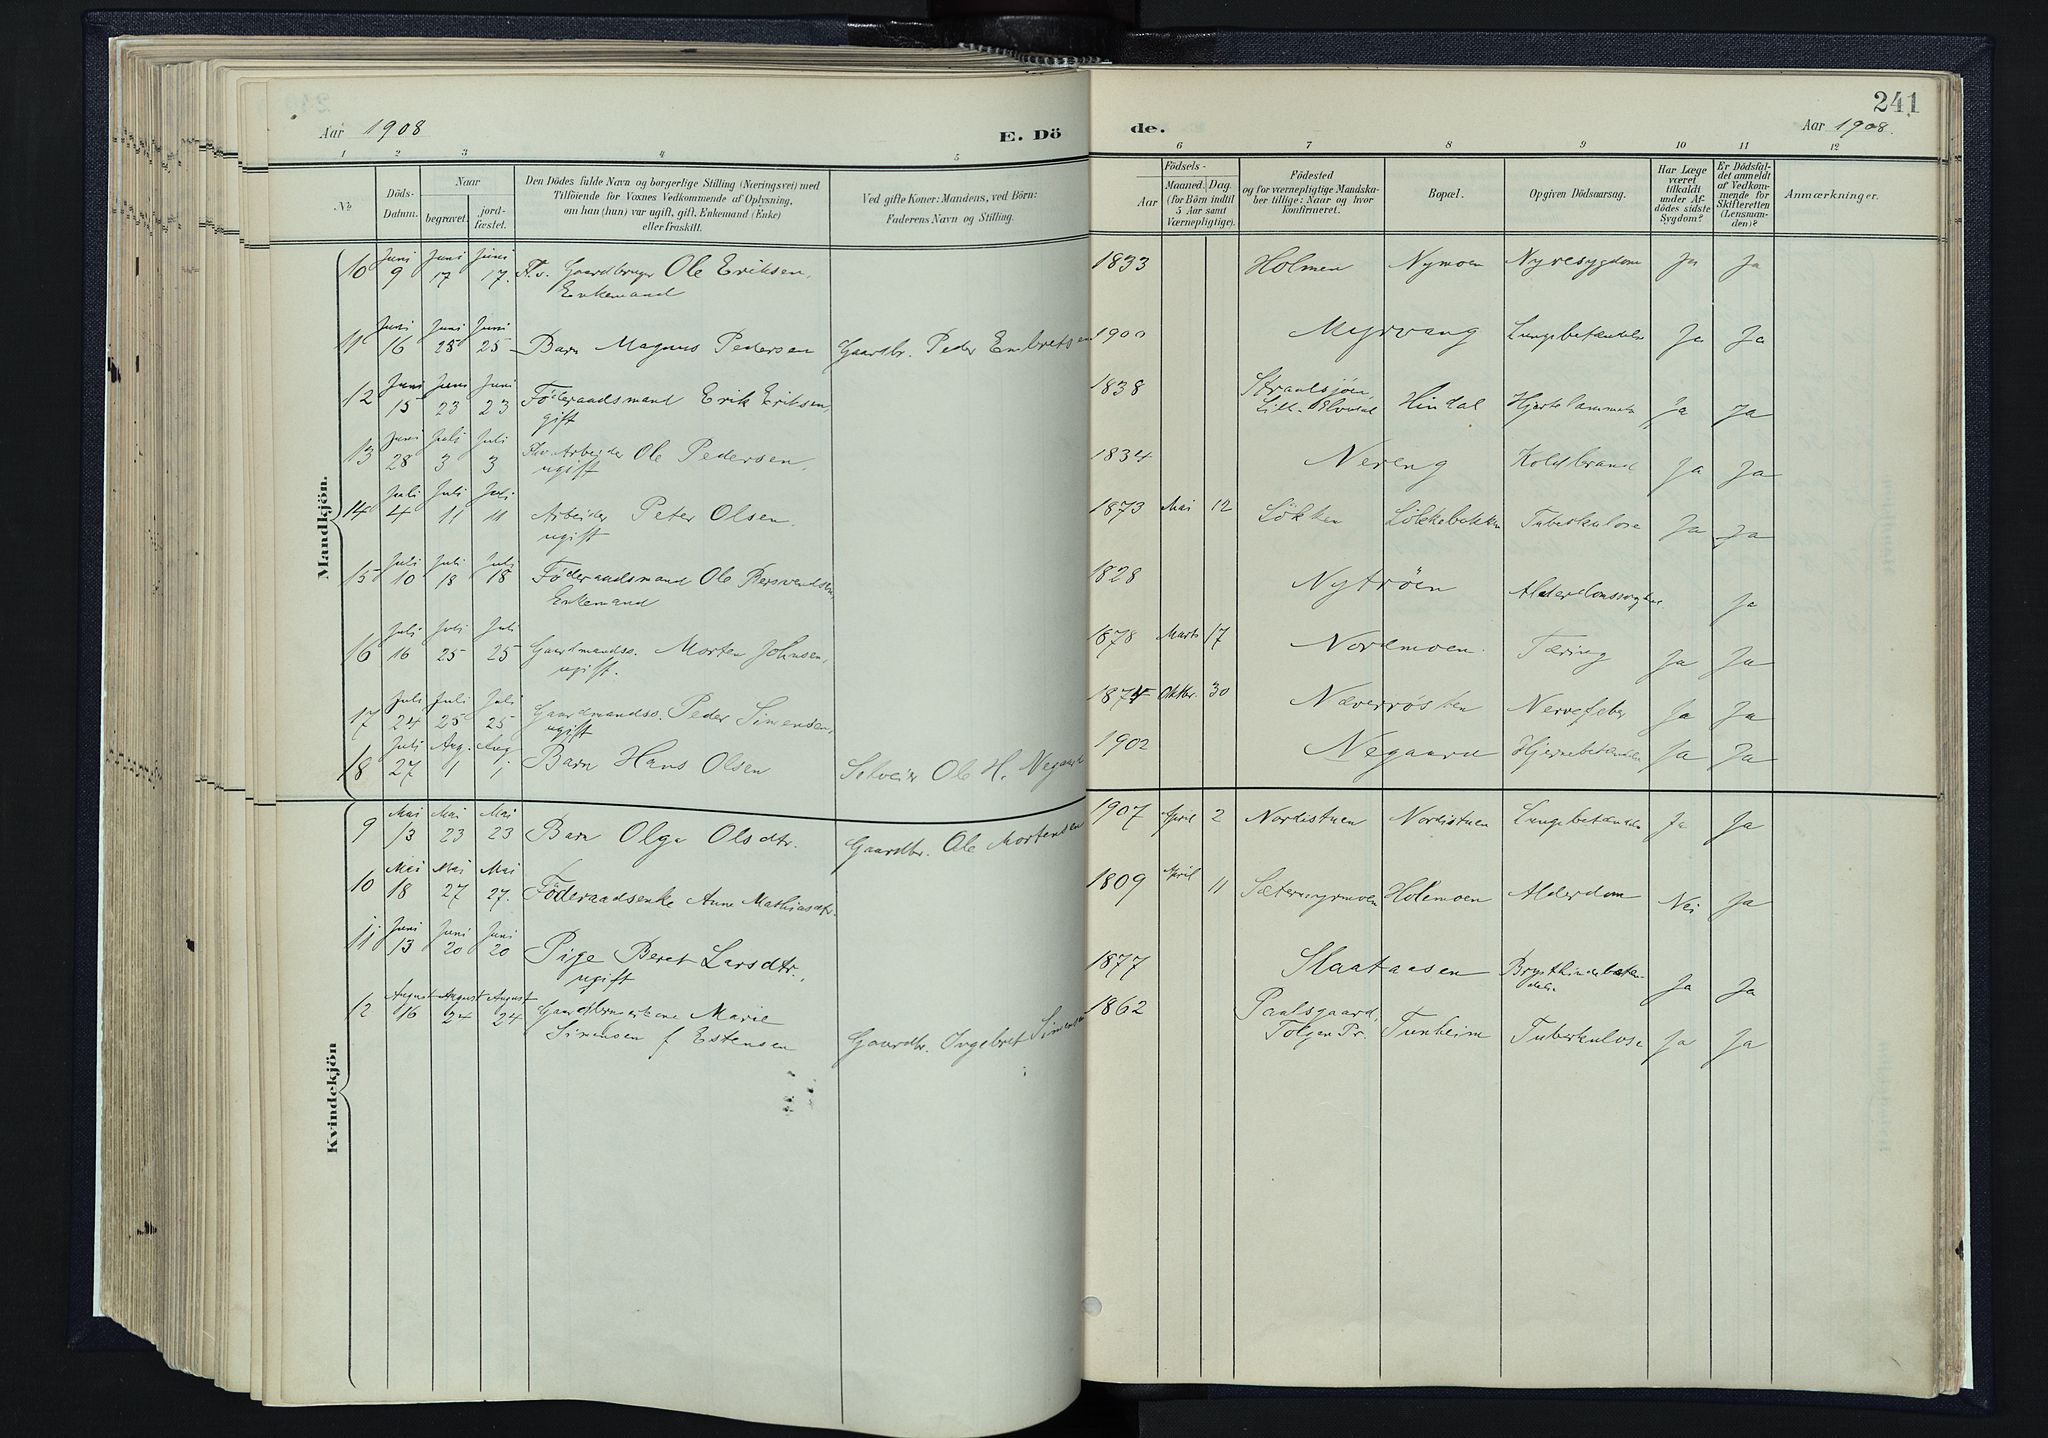 241
Aar 1908
E. Dö
de.
Aar 1908.
1 2 3 4 5 6 7 8 9 10 11 12
No
Döds-
Datum.
Naar
begravet.
jord-
fæstet.
Den Dödes fulde Navn og borgerlige Stilling (Næringsvei) med
Tilföiende for Voxnes Vedkommende af Oplysning,
om han (hun) var ugift, gift, Enkemand (Enke)
eller fraskilt.
Ved gifte Koner: Mandens, ved Börn:
Faderens Navn og Stilling.
Födsels-
Aar
Maaned. Dag.
(for Börn indtil
5 Aar samt
Værnepligtige).
Födested
og for værnepligtige Mandska-
ber tillige: Naar og hvor
konfirmeret.
Bopæl.
Opgiven Dödsaarsag.
Har Læge
været
tilkaldt
under Af-
dödes sidste
Sygdom?
Er Dödsfal-
det anmeldt
af Vedkom-
mende for
Skifteretten
(Lensman-
den)?
Anmærkninger.
Mandkjön.
10 Juni 9 Juni 17 Juni 17. F.v. Gaardbruger Ole Eriksen, 1833 Holmen Nymoen Nyresygdom Ja Ja
Enkemand
11 Juni 16 Juni 25 Juni 25 Barn Magnus Pedersen Gaardbr. Peder Embretsen 1900 Myrvang Lungebetændelse Ja Ja
12 Juni 15 Juni 23 Juni 23 Föderaadsmand Erik Eriksen, 1838 Hindal Hjertelammelse Ja Ja
gift
13 Juni 28 Juli 3 Juli 3 Fhv. Arbeider Ole Pedersen, 1834 Nereng Koldbrand Ja Ja
ugift
14 Juli 4 Juli 11 Juli 11 Arbeider Peter Olsen, 1873 Mai 12 Lökken Lökkebakken Tuberkulose Ja Ja
ugift
15 Juli 10 Juli 18 Juli 18 Föderaadsmand Ole Bersvendsen 1828 Nytröen Alderdomssvaghed Ja
Enkemand
16 Juli 16 Juli 25 Juli 25 Gaardmandss. Morten Johnsen, 1878 Marts 17 Nordmoen. Tæring Ja Ja
ugift.
17 Juli 24 Juli 25 Juli 25 Gaardmandss. Peder Simensen, Oktbr. 30 Næverrösten Nervefeber Ja Ja
ugift
18 Juli 27 Aug. 1 Aug. 1 Barn Hans Olsen Selveier Ole H. Negaard 1902 Negaard Hjernebetændelse Ja Ja
Kvindekjön
9 Mai 13 Mai 23 Mai 23 Barn Olga Olsdtr. Gaardbr. Ole Mortensen 1907 April 2 Nordistuen Nordistuen Lungebetændelse Ja Ja
10 Mai 18 Mai 27 Mai 27. Föderaadsenke Anne Mathiasdtr. 1809 April 11 Sætermyrmoen Holemoen Alderdom Nei Ja
11 Juni 13 Juni 20 Juni 20 Pige Beret Larsdtr., 1877 Slaataasen Ja Ja
ugift
12 August 16 August 24 August 24 Marie 1862 Paulsgaard,
Simensen f. Estensen Gaardbr. Ingebret Simensen Tolgen Pr. Tunheim Tuberkulose Ja Ja